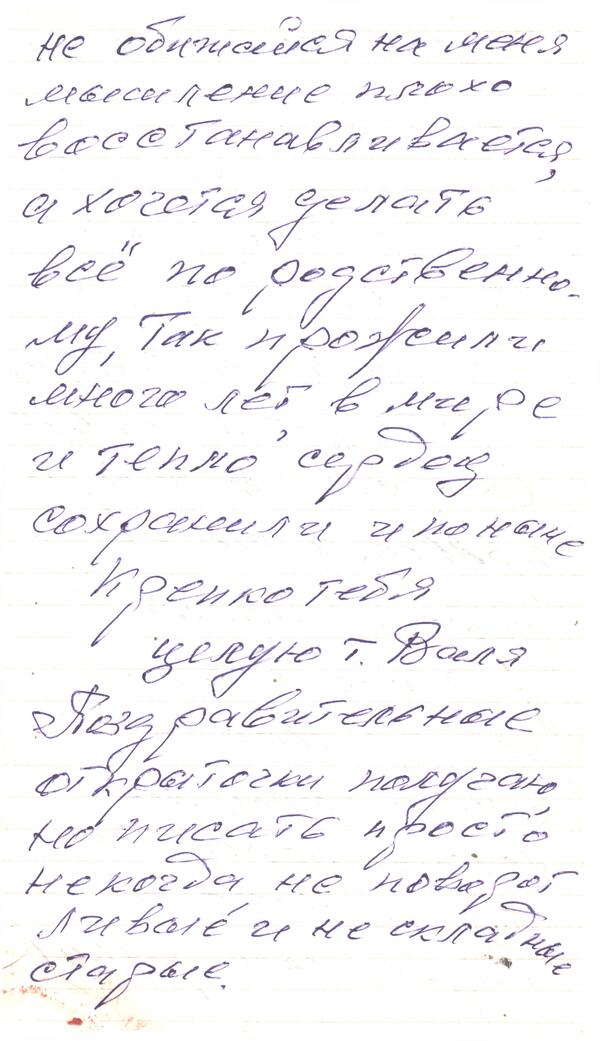 не обижайся на меня
мышление плохо
восстанавливается,
а хочется делать
всё по родственно-
му, так прожили
много лет в мире
и тепло сердец
сохранили и поныне
Крепко тебя
целую т. Валя
Поздравительные
открыточки получаю,
но писать просто
некогда не поворот
ливые и не складные
старые.